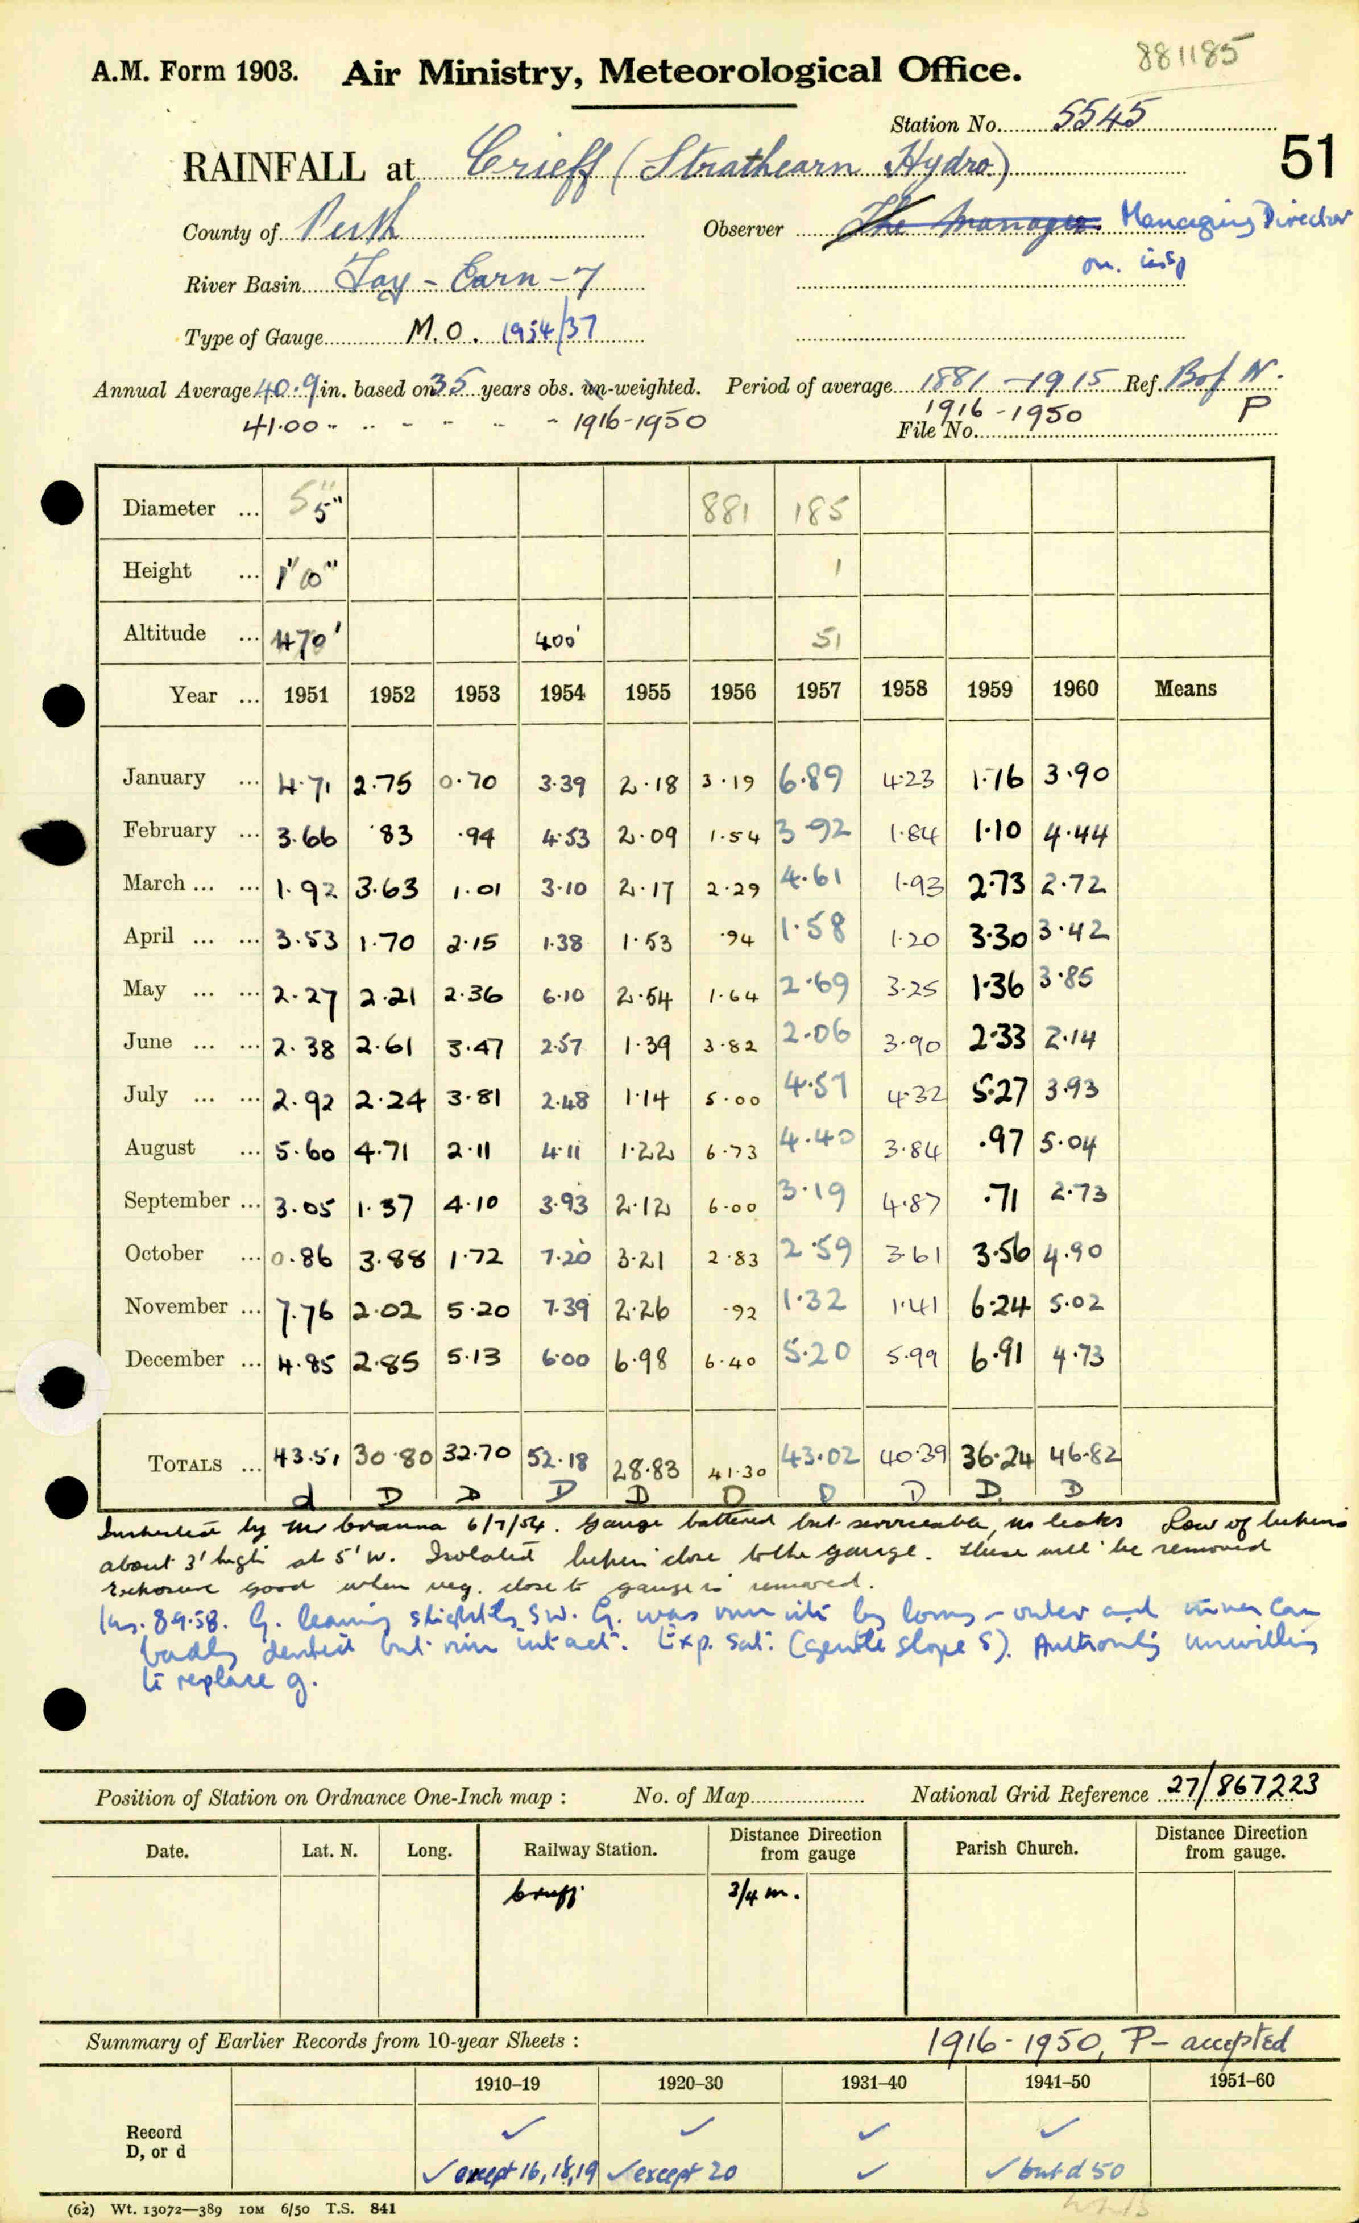 881185
A.M. Form 1903. Air Ministry, Meteorological Office.
Station No. 5545
51
RAINFALL at Crieff (Strathearn Hydro)
County of Perth Observer The Manager Managing Director
on. insp
River Basin Tay - Earn - 7
Type of Gauge M.O. 1954/37
Annual Average 40.9 in. based on 35 years obs. un-weighted. Period of average 1881 - 1915 Ref. B of N.
41.00 - .. - - .. - 1916-1950 1916 - 1950 P
File No.
Diameter ... 5" 5" 881 185
Height ... 1' 0" 1
Altitude ... 470' 400' 51
Year ... 1951 1952 1953 1954 1955 1956 1957 1958 1959 1960 Means
January ... 4.71 2.75 0.70 3.39 2.18 3.19 6.89 4.23 1.76 3.90
February ... 3.66 .83 .94 4.53 2.09 1.54 3.92 1.84 1.10 4.44
March ... ... 1.92 3.63 1.01 3.10 2.17 2.29 4.61 1.93 2.73 2.72
April ... ... 3.53 1.70 2.15 1.38 1.53 .94 1.58 1.20 3.30 3.42
May ... ... 2.27 2.21 2.36 6.10 2.54 1.64 2.69 3.25 1.36 3.85
June ... ... 2.38 2.61 3.47 2.57 1.39 3.82 2.06 3.90 2.33 2.14
July ... ... 2.92 2.24 3.81 2.48 1.14 5.00 4.57 4.32 5.27 3.93
August ... 5.60 4.71 2.11 4.11 1.22 6.73 4.40 3.84 .97 5.04
September ... 3.05 1.37 4.10 3.93 2.12 6.00 3.19 4.87 .71 2.73
October ... 0.86 3.88 1.72 7.20 3.21 2.83 2.59 3.61 3.56 4.90
November ... 7.76 2.02 5.20 7.39 2.26 .92 1.32 1.41 6.24 5.02
December ... 4.85 2.85 5.13 6.00 6.98 6.40 5.20 5.99 6.91 4.73
TOTALS ... 43.51 30.80 32.70 52.18 28.83 41.30 43.02 40.39 36.24 46.82
d D D D D D D D D D
Inspected by Mr 6/7/54. Gauge battered but serviceable, no leaks Row of lupins
about 3' high at 5' W. Isolated lupin close to the gauge. These will be removed
Exposure good when veg. close to gauge is removed.
Ins. 8.9.58. G. leaning slightly SW. G. was run into by lorry - outer and inner can
badly dented but rim intact. Exp. Sat. (gentle slope S). Authority unwilling
to replace g.
Position of Station on Ordnance One-Inch map : No. of Map National Grid Reference 27/867223
Date. Lat. N. Long. Railway Station. Distance Direction from gauge Parish Church. Distance Direction from gauge.
Crieff 3/4 m.
Summary of Earlier Records from 10-year Sheets : 1916 - 1950, P - accepted
1910–19 1920–30 1931–40 1941–50 1951–60
Record ✓ ✓ ✓ ✓
D, or d ✓ except 16, 18, 19 ✓ except 20 ✓ ✓ but d 50
(62) Wt. 13072—389 10M 6/50 T.S. 841